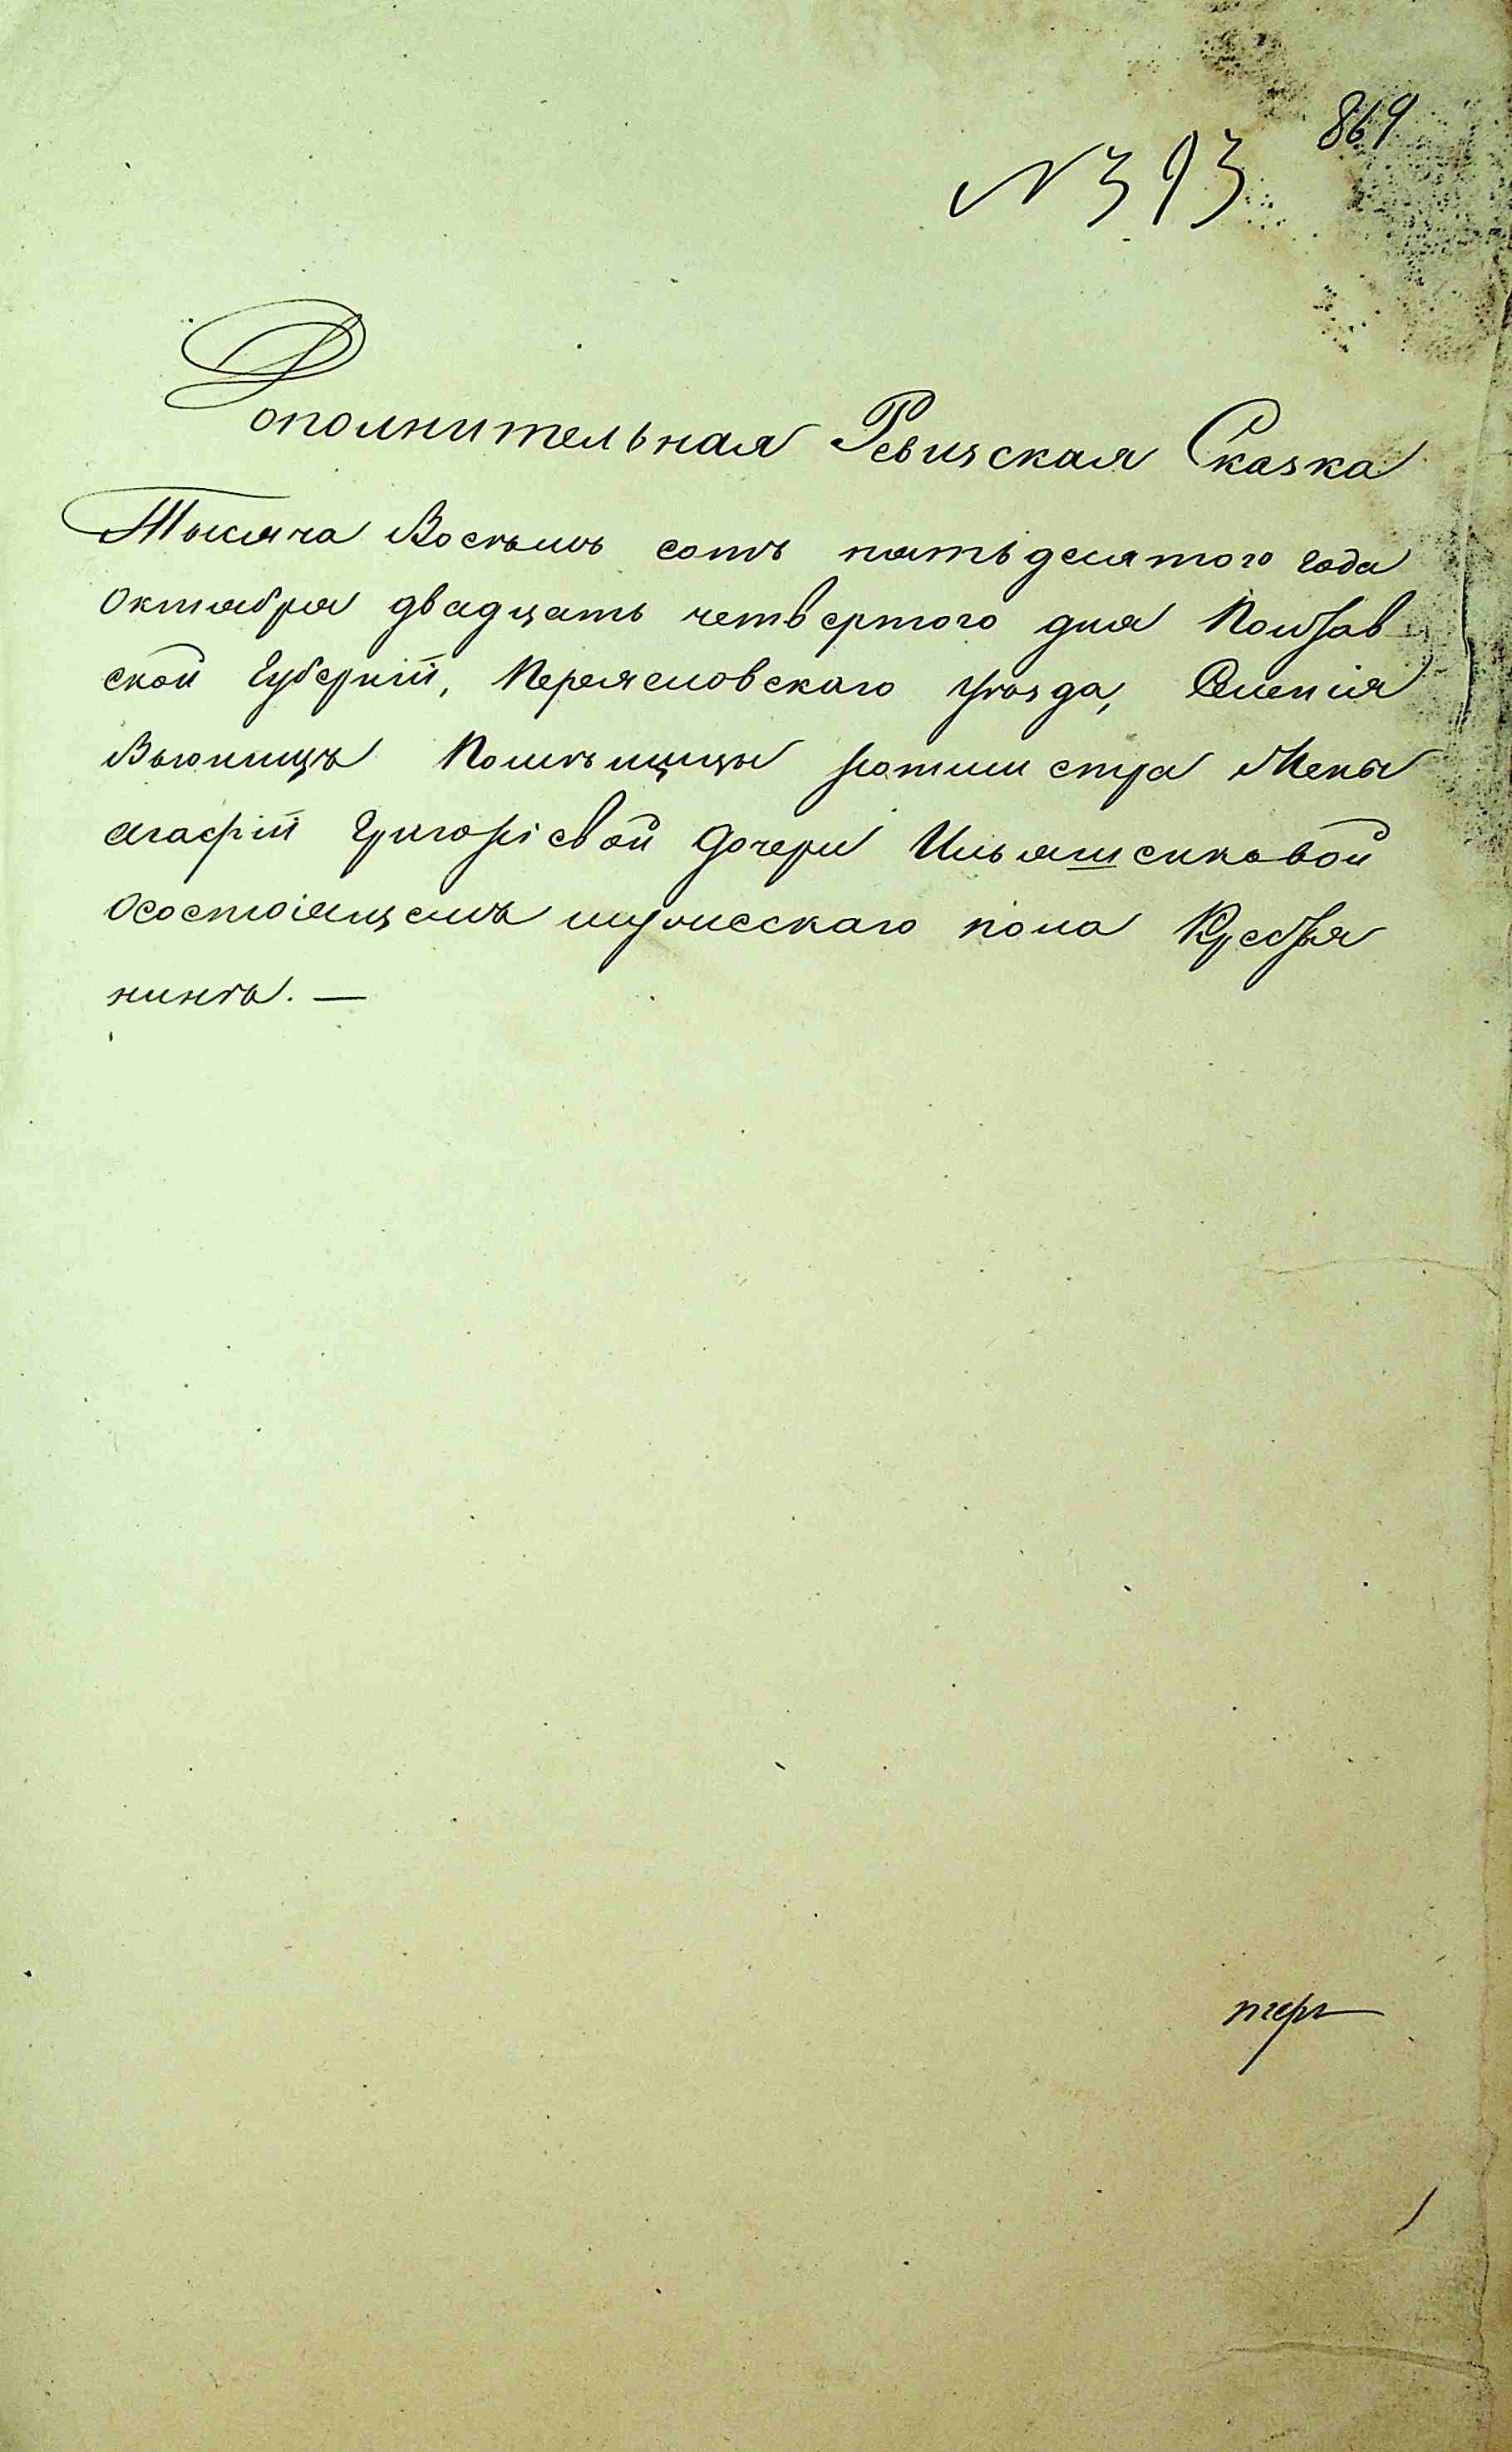 869
N 393
Дополнительная Ревизская Сказка
Тысяча Восѣмь сотъ пятьдесятого года
Октября двадцать четвертого дня Полтав
ской Губерніи, Переясловскаго уѣзда, Селенія
Вьюницъ Помѣщицы ротмистра Жены
Агафіи Григорiевой дочери Ильяшенковой
Осостоiящемъ мужескаго пола Крестья
нинѣ. —